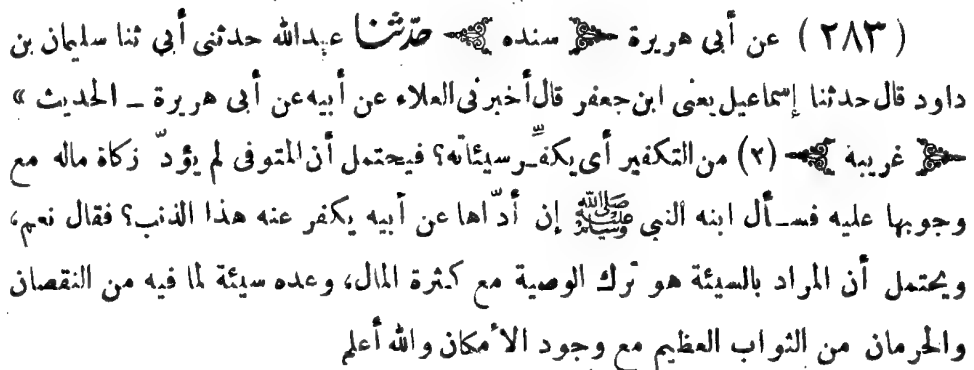 ( ٢٨٣ ) عن أبى هريرة ﴿ سنده ﴾ حدّثنا عبدالله حدثنى أبي ثنا سليمان بن
داود قال حدثنا إسماعيل يعنى ابن جعفر قال أخبرنى العلاء عن أبيه عن أبى هريرة ــ الحديث »
﴿ غريبة ﴾ (٢) من التكفير أى يكفِّر سيئاته؟ فيحتمل أن المتوفى لم يؤدّ زكاة ماله مع
وجوبها عليه فسأل ابنه النبى ﷺ إن أدّاها عن أبيه يكفر عنه هذا الذنب؟ فقال نعم،
ويحتمل أن المراد بالسيئة هو ترك الوصية مع كثرة المال، وعده سيئة لما فيه من النقصان
والحرمان من الثواب العظيم مع وجود الأمكان والله أعلم